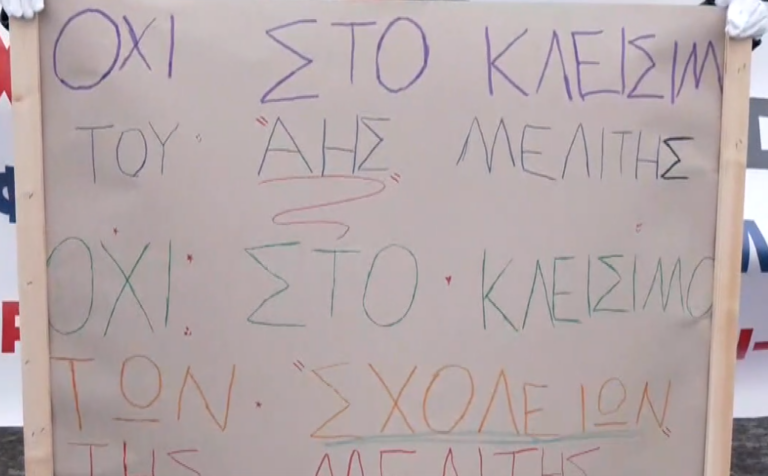 ΟΧΙ ΣΤΟ ΚΛΕΙΣΙΜ
ΤΟΥ "ΑΗΣ" ΜΕΛΙΤΗΣ
ΟΧΙ ΣΤΟ ΚΛΕΙΣΙΜΟ
ΤΩΝ "ΣΧΟΛΕΙΩΝ"
ΤΗΣ ΜΕΛΙΤΗΣ